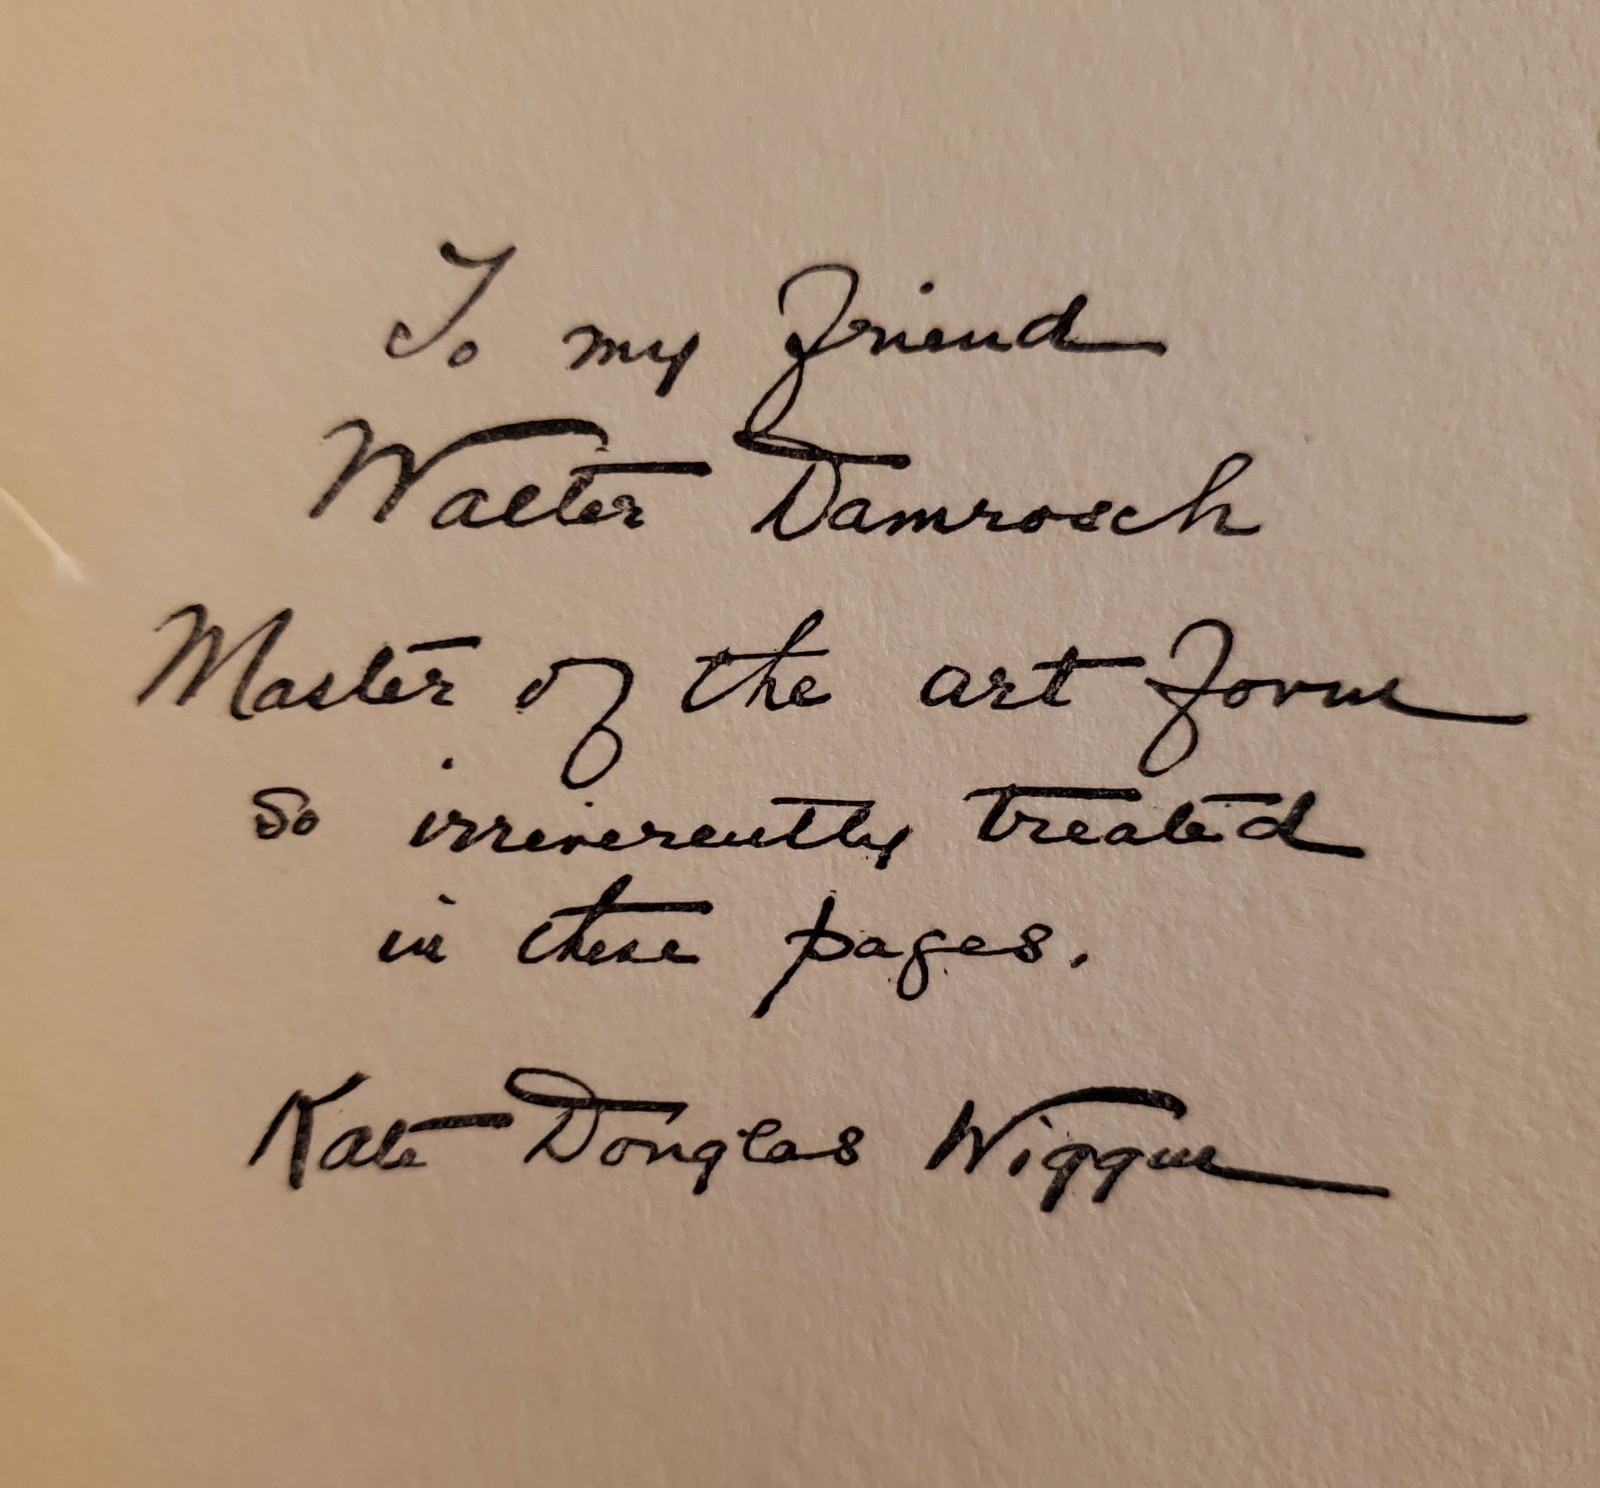 To my friend
Walter Damrosch
Master of the art form
so irreverently treated
in these pages.
Kate Douglas Wiggin